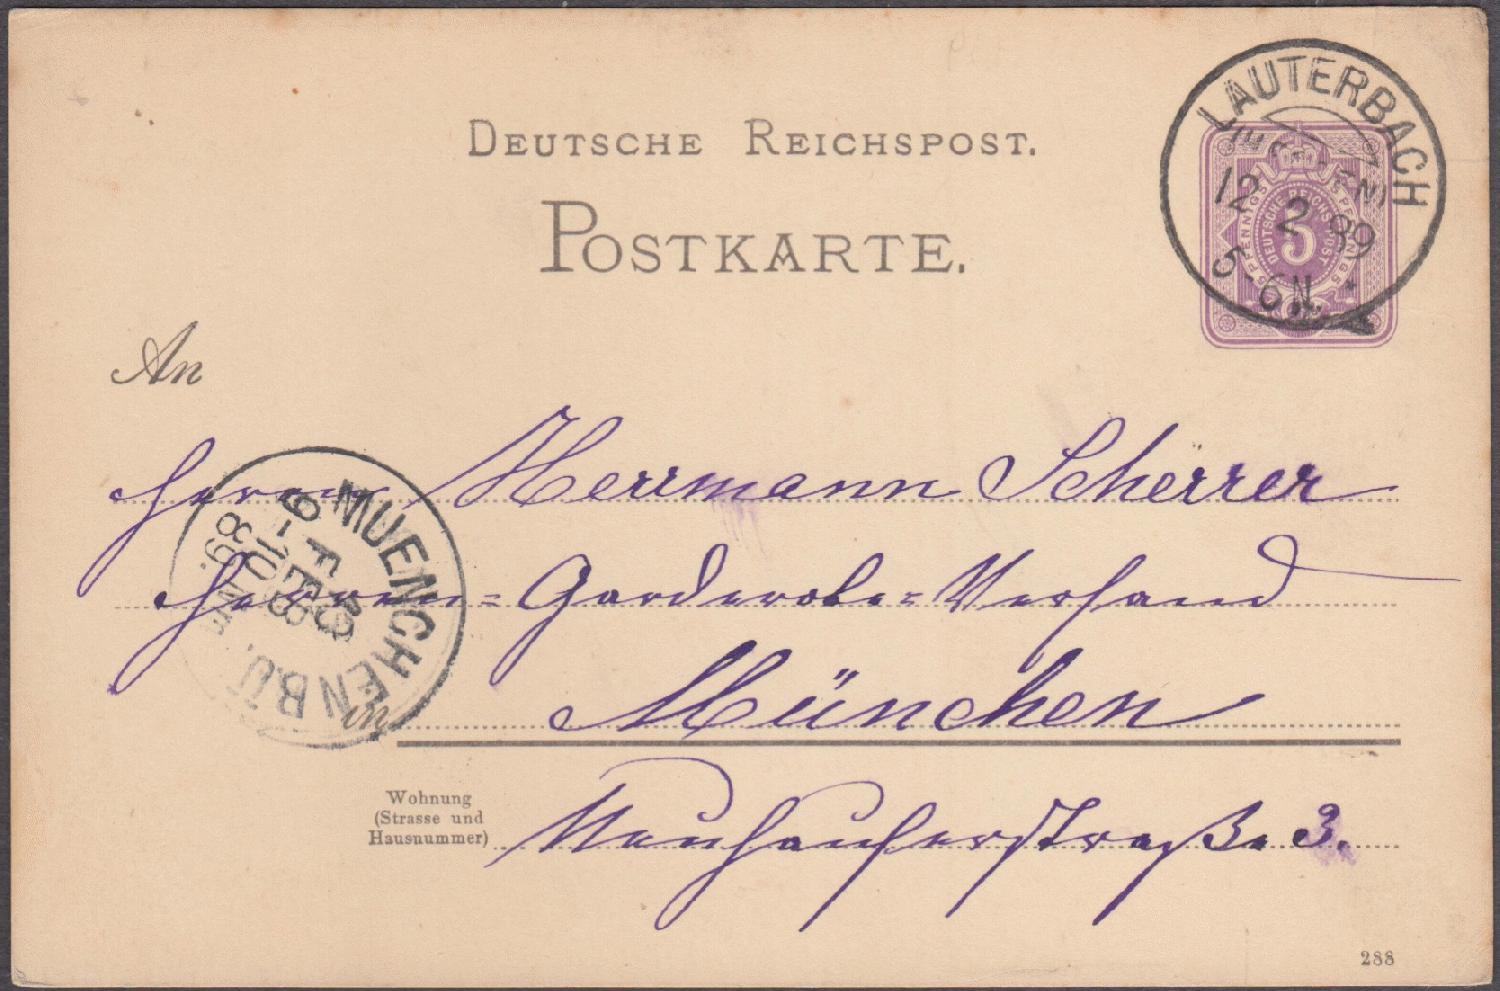 DEUTSCHE REICHSPOST.
POSTKARTE.
LAUTERBACH
12 2 89
5-6N.
5 PFENNIG 5
DEUTSCHE REICHSPOST
5
An
Herrn Herrmann Scherrer
Herren=Garderobe=Versand
MUENCHEN B.
FEB
89.
in München
Wohnung
(Strasse und
Hausnummer)
Neuhauserstraße. 3.
288